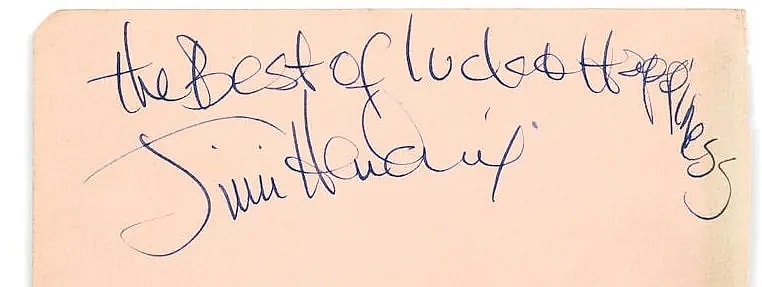 the Best of luck & Happiness
Jimi Hendrix